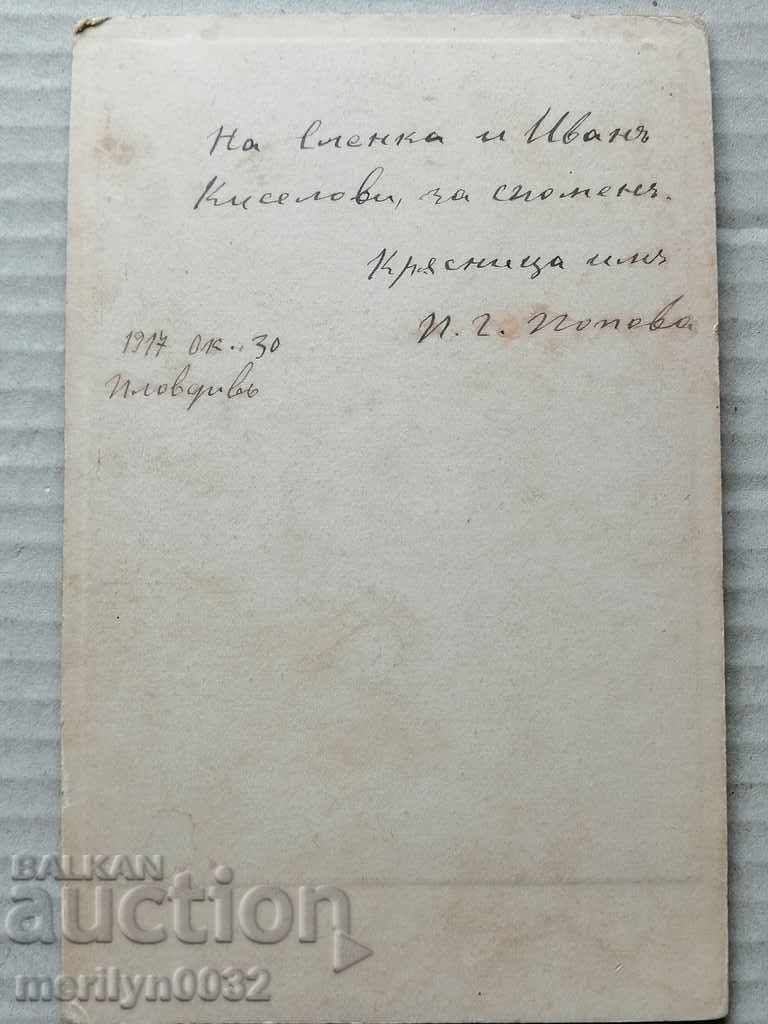 На Еленка и Иванъ
Киселови, за споменъ.
Кръсница имъ
П. Г. Попова
1917 Ок. 30
Пловдивъ
BALKAN
auction
merilyn0032